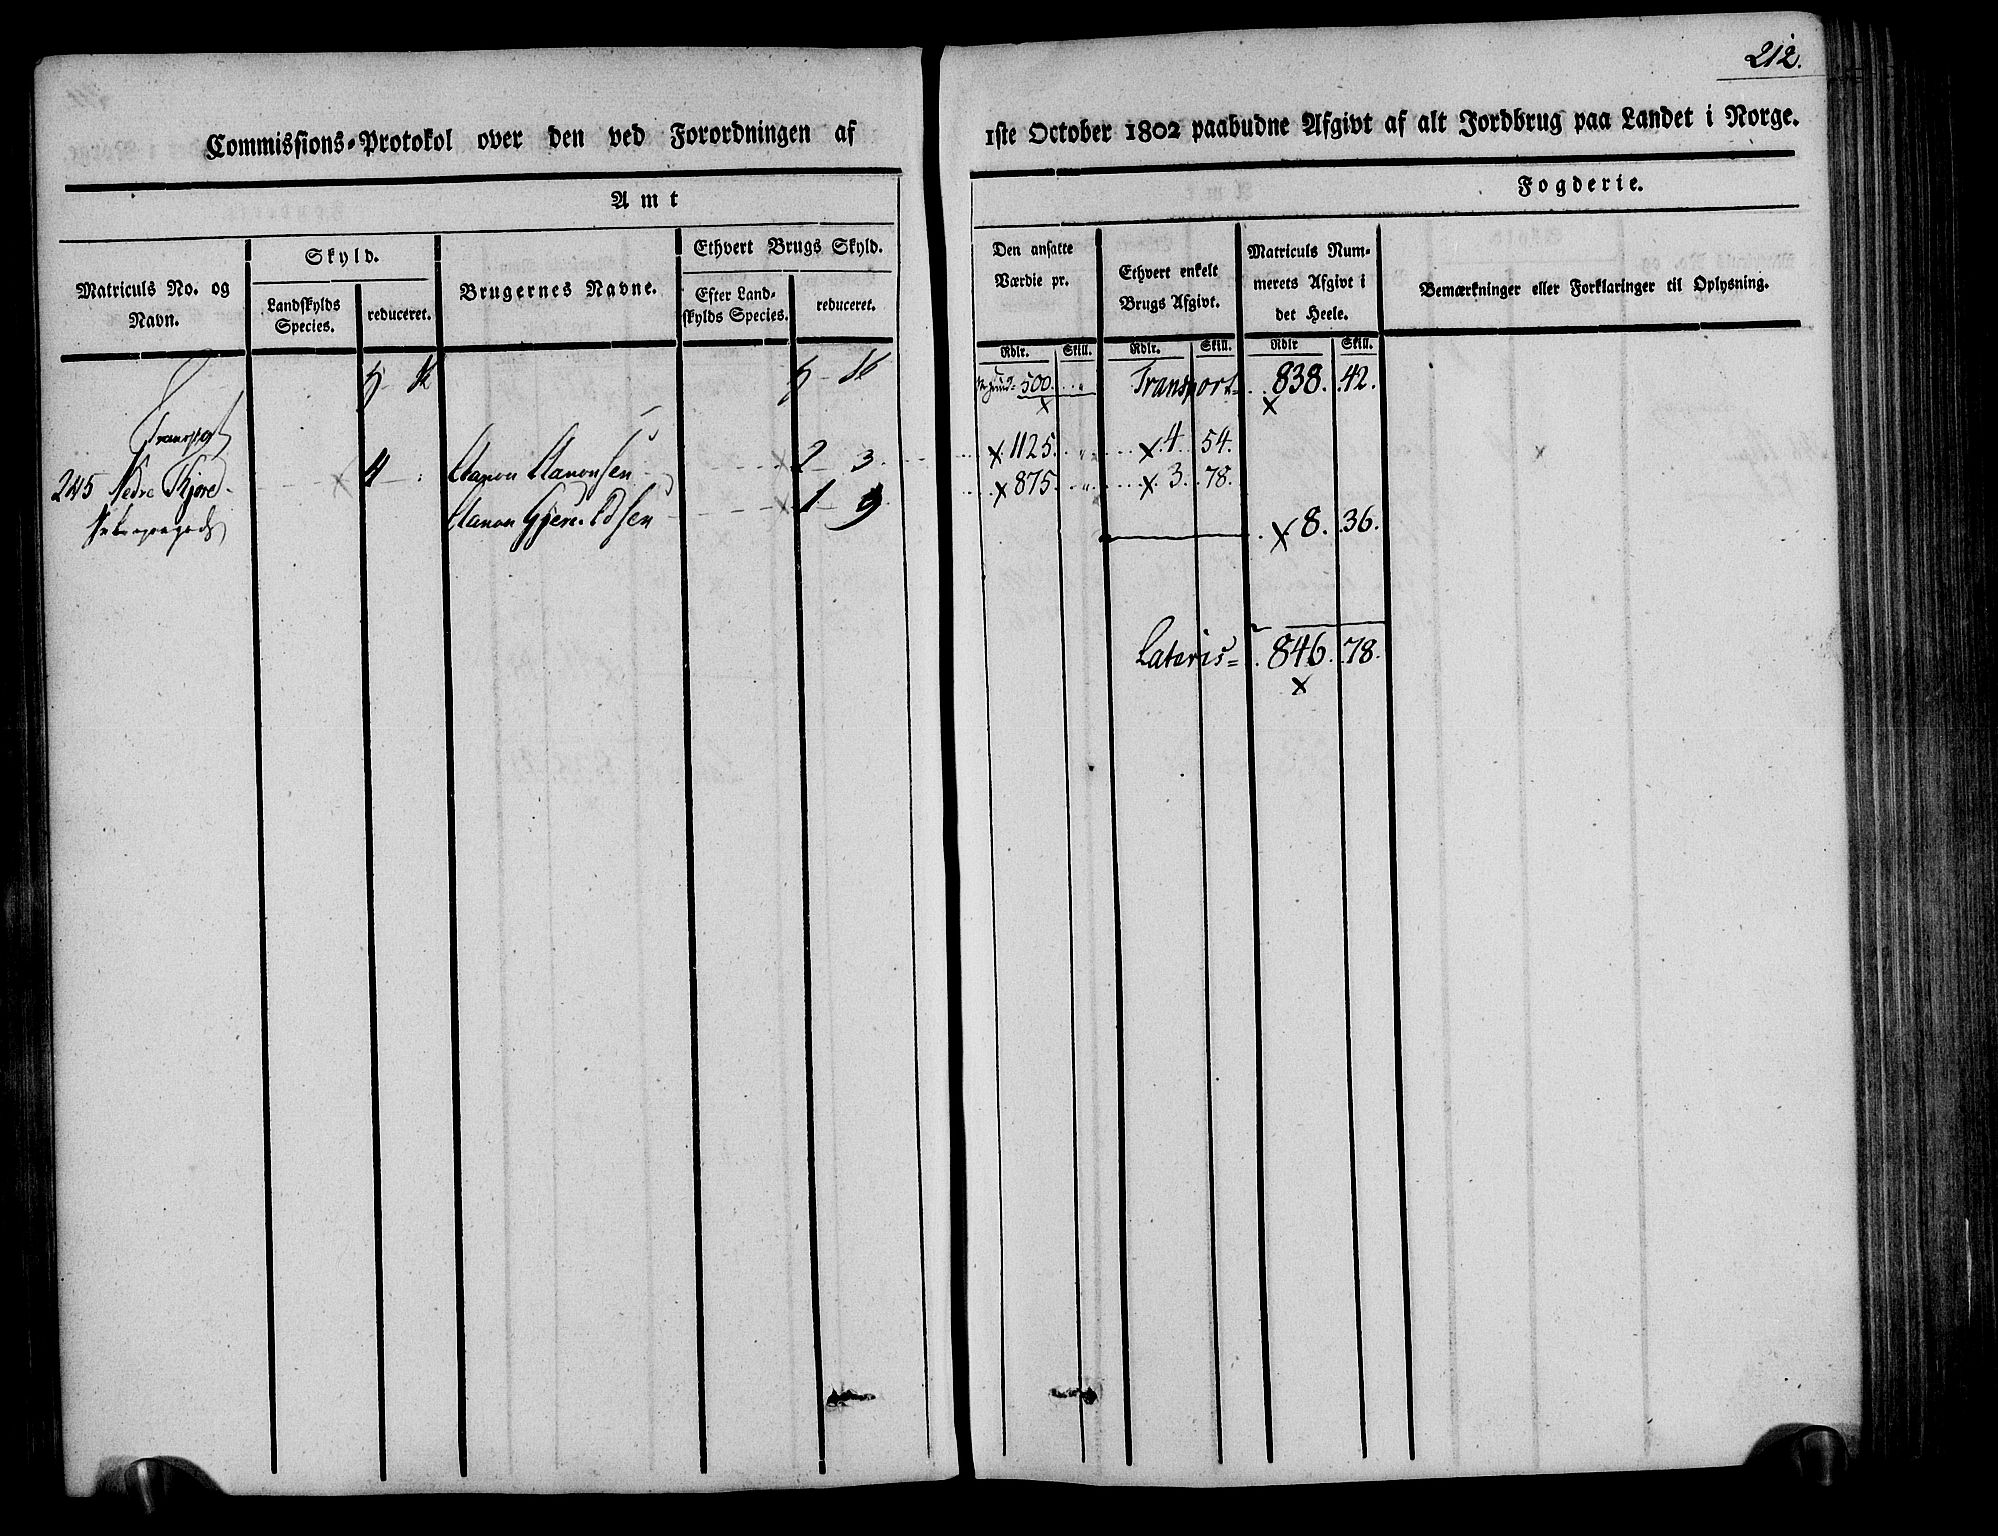 212.
Commissions-Protokol over den ved Forordningen af 1ste October 1802 paabudne Afgivt af alt Jordbrug paa Landet i Norge.
Amt
Fogderie.
Matriculs No. og Navn.
Skyld.
Landskylds Species.
reduceret.
Brugernes Navne.
Ethvert Brugs Skyld.
Efter Landskylds Species.
reduceret.
Den ansatte Værdie pr.
Ethvert enkelt Brugs Afgivt.
Matriculs Nummerets Afgivt i det Heele.
Bemærkninger eller Forklaringer til Oplysning.
Rdlr. Skill. Rdlr. Skill. Rdlr Skill.
500. Transport 838. 42.
Transport
245 Nedre 4 Aanon Aanonsen 2 3 1125. 4 54.
Aanon 1 9 875. 3. 78.
8. 36.
Lateris 846. 78.